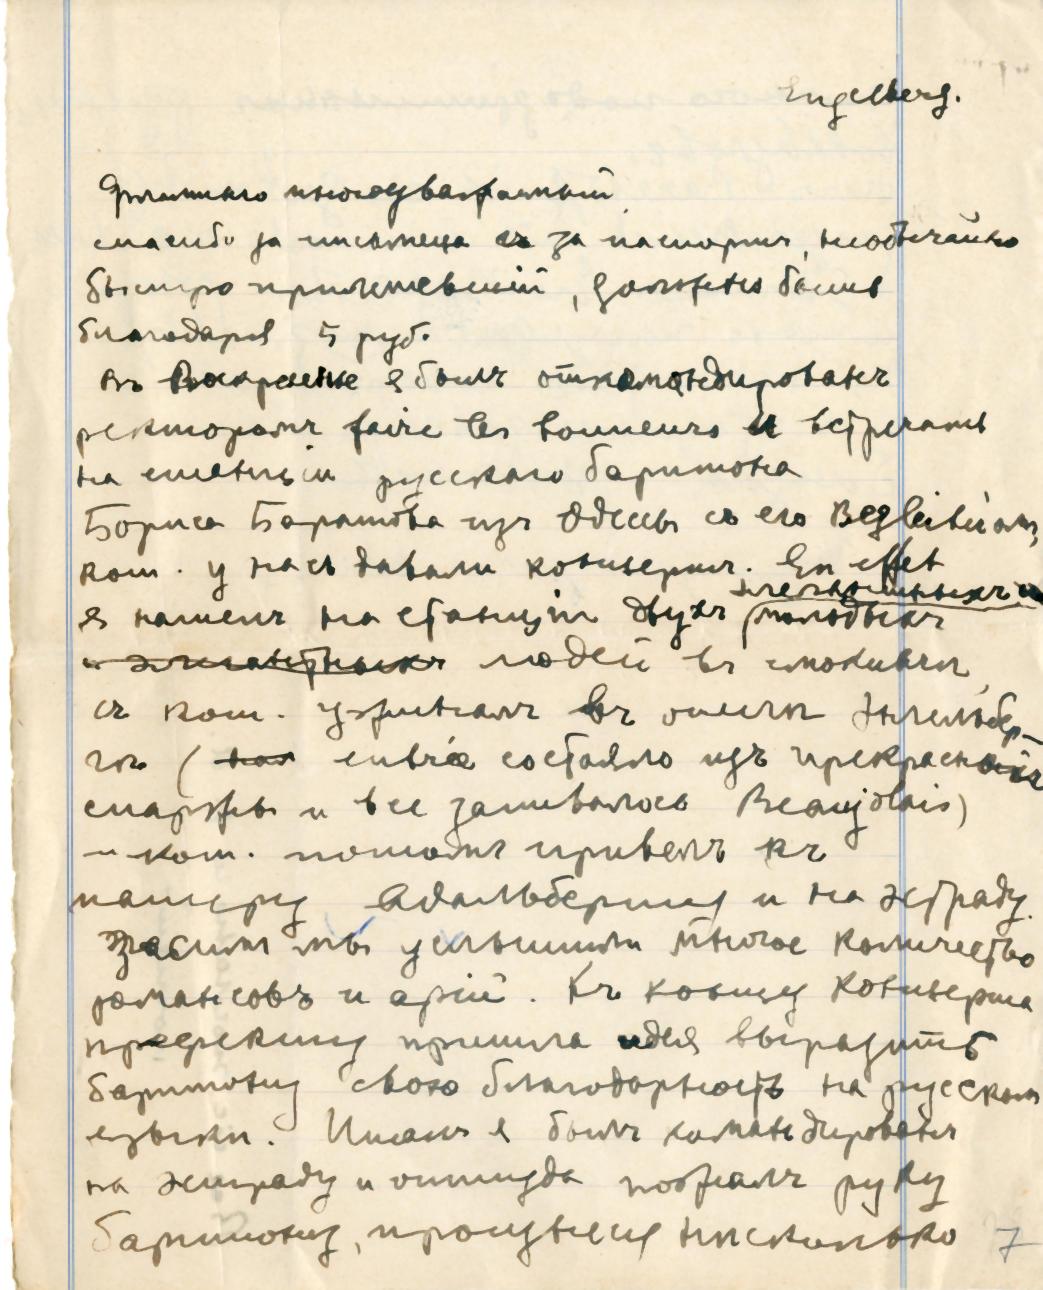 Engelberg.
многоуважаемый,
спасибо за письмеца и за паспортъ, необычайно
быстро прилетевшiй, должно быть
благодаря 5 руб.
Въ Воскресенье я былъ откомандированъ
ректоромъ faire les honneurs и встречать
на станцiи русскаго баритона
Бориса Баратова изъ Одессы съ его Begleiter'омъ,
кот. у насъ давали концертъ. En effet
я нашелъ на станцiи двухъ элегантныхъ и
молодыхъ
и элегантныхъ людей въ смокингѣ,
съ кот. ужиналъ въ отелѣ Энгельбер-
гѣ ( entrée состояло изъ прекрасной
спаржи и все запивалось Beaujolais)
и кот. потомъ привелъ къ
патеру Адальберту и на эстраду.
Засимъ мы услышали многое количество
романсовъ и арiй. Къ концу концерта
префекту пришла идея выразить
баритону свою благодарность на русскомъ
языкѣ. Итакъ я былъ командированъ
на эстраду и оттуда пожалъ руку
баритону, произнеся нѣсколько
7